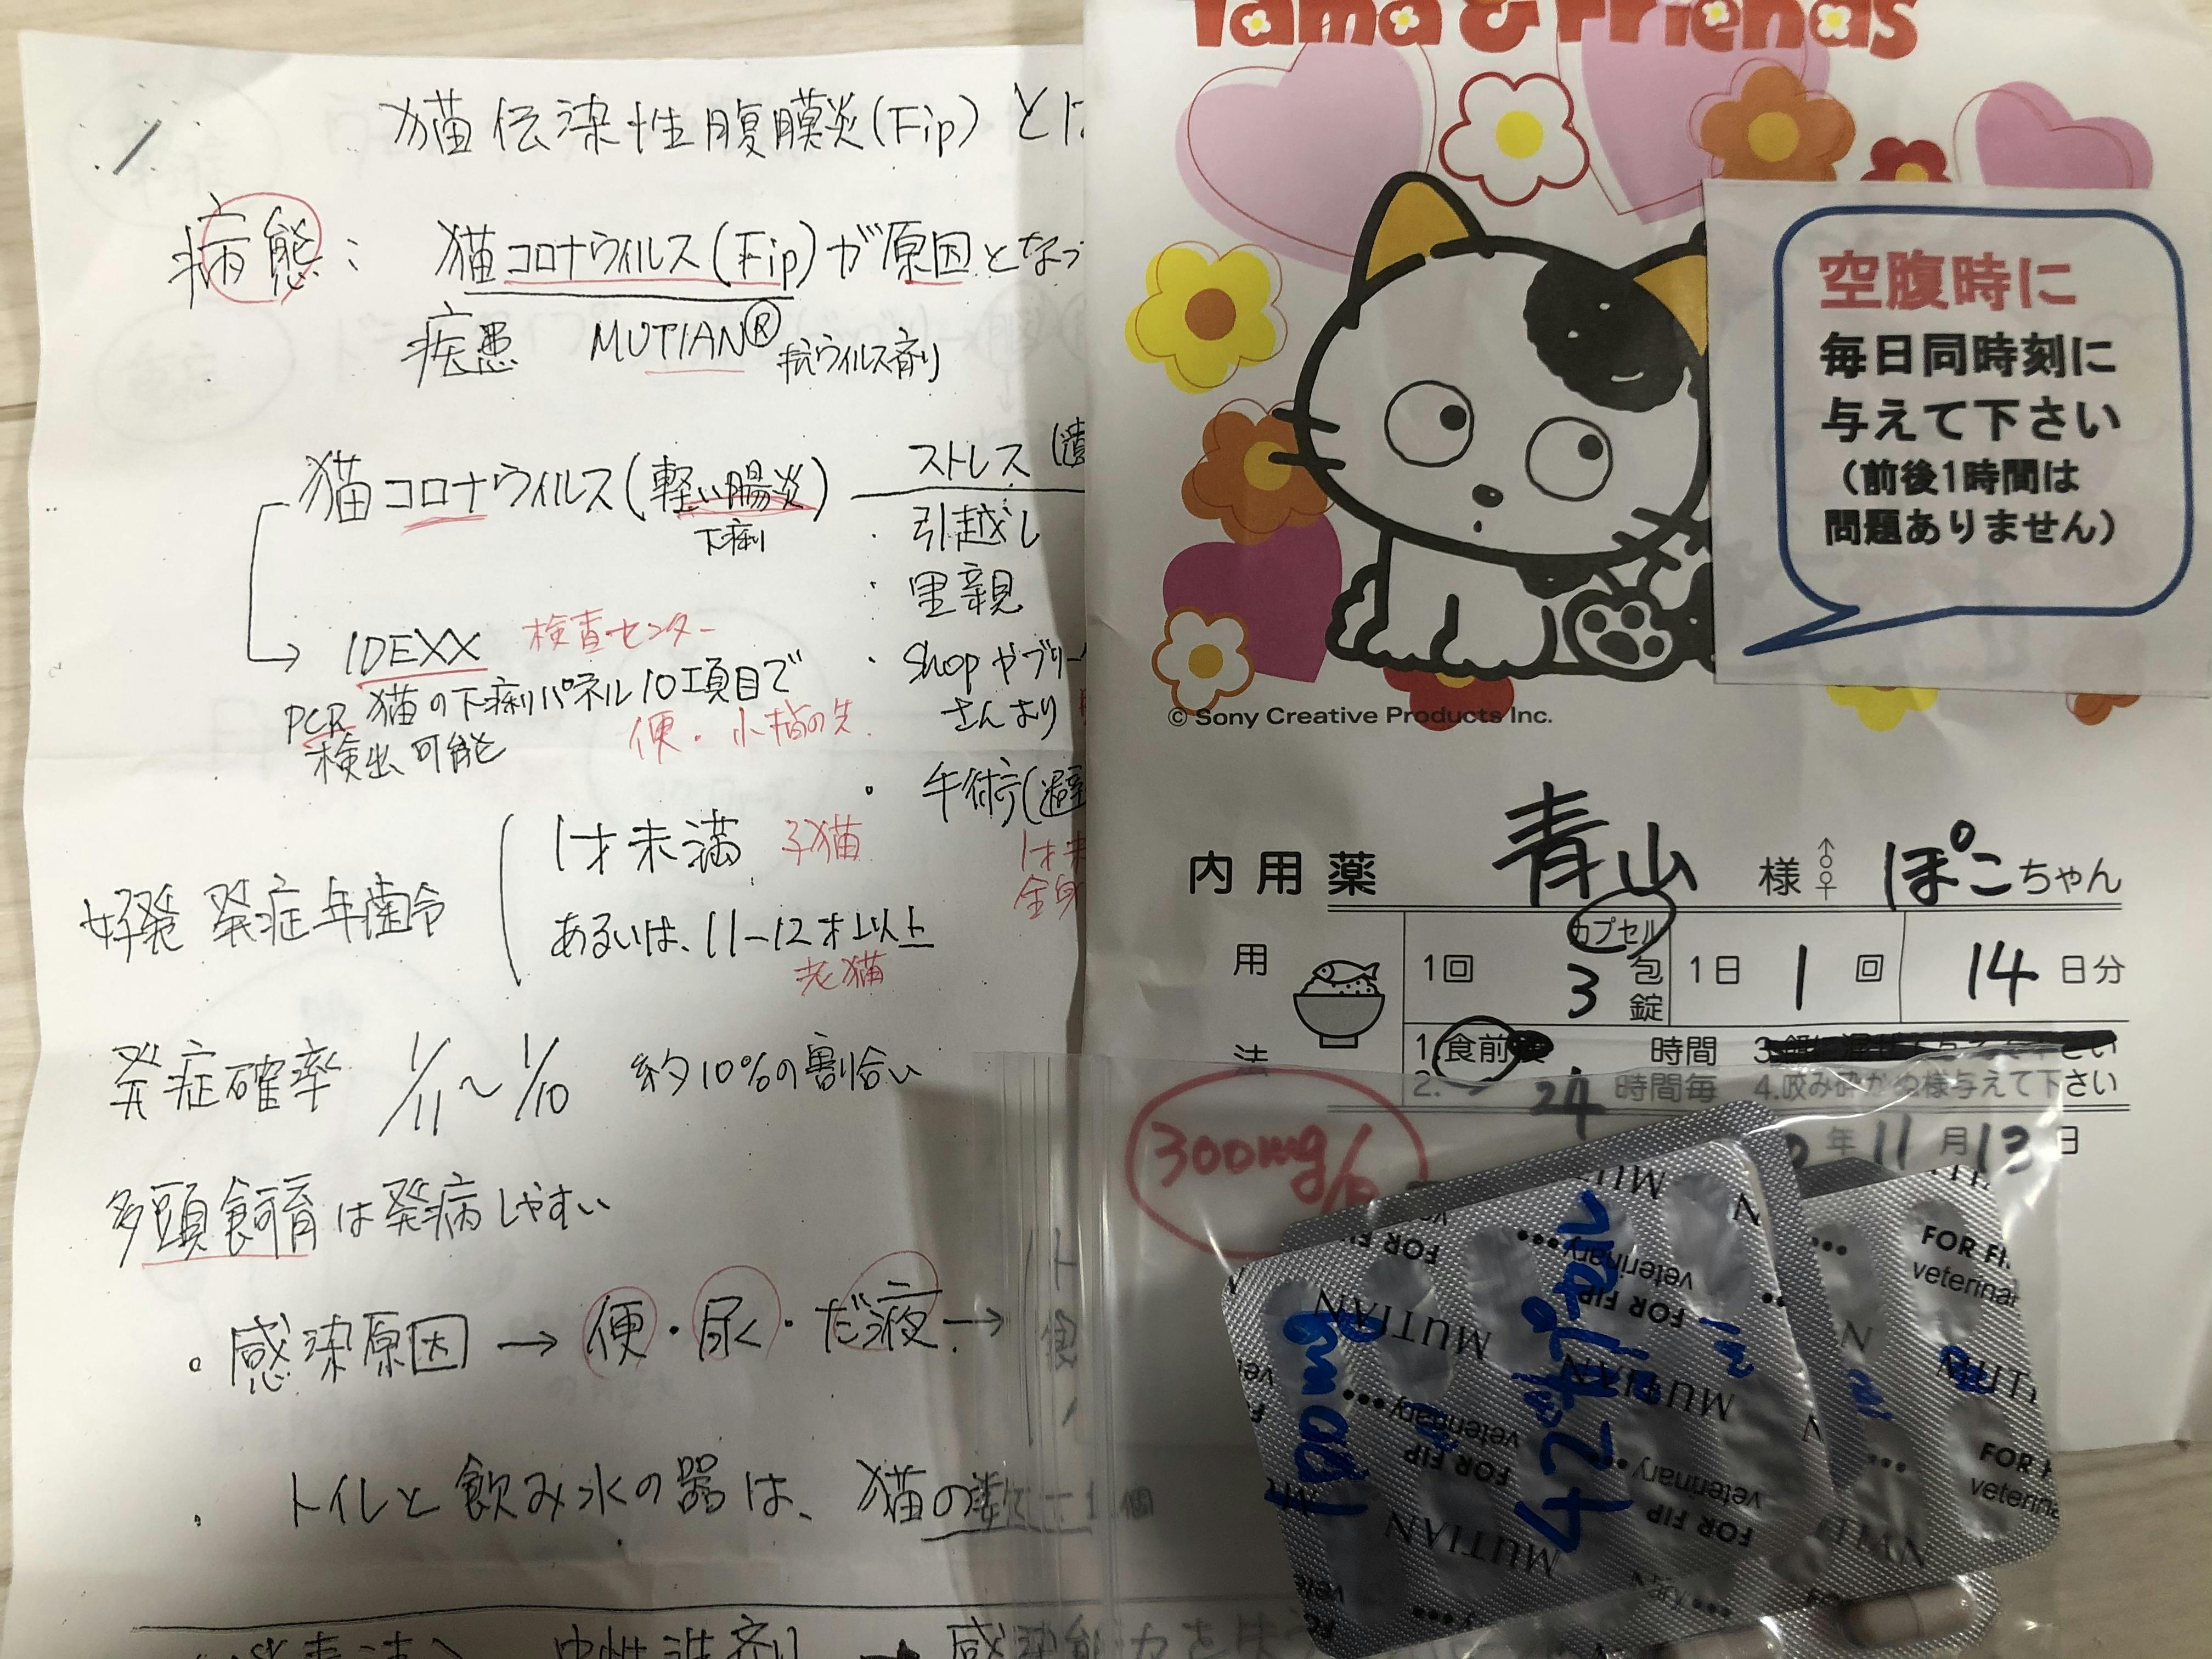 猫伝染性腹膜炎(Fip)とは
病態: 猫コロナウィルス(Fip)が原因となっ
疾患 MUTIAN® 抗ウイルス剤
猫コロナウィルス(軽い腸炎)
下痢
ストレス
・引越し
・里親
・shopやブリー
さんより
・手術(避
IDEXX 検査センター
PCR 猫の下痢パネル10項目で
検出可能 便・小指の先
好発 発症年齢
1才未満 子猫
あるいは、11-12才以上
老猫
1才未
全身
発症確率 1/11~1/10 約10%の割合い
多頭飼育は発病しやすい
。感染原因→便・尿・だ液→
・トイレと飲み水の器は、猫の数+1個
中性洗剤
Tama & Friends
空腹時に
毎日同時刻に
与えて下さい
(前後1時間は
問題ありません)
© Sony Creative Products Inc.
内用薬 青山 様 ♂♀ ぽこちゃん
用法
1回 3 カプセル 包 錠 1日 1 回 14 日分
1.食前 時間
2. 24 時間毎 4.咬み砕かぬ様与えて下さい
年 11 月 13 日
300mg/日
100mg
42カプセル
MUTIAN
FOR FIP
veterinary
MUTIAN
FOR FIP
veterinary
MUTIAN
FOR FIP
veterinary